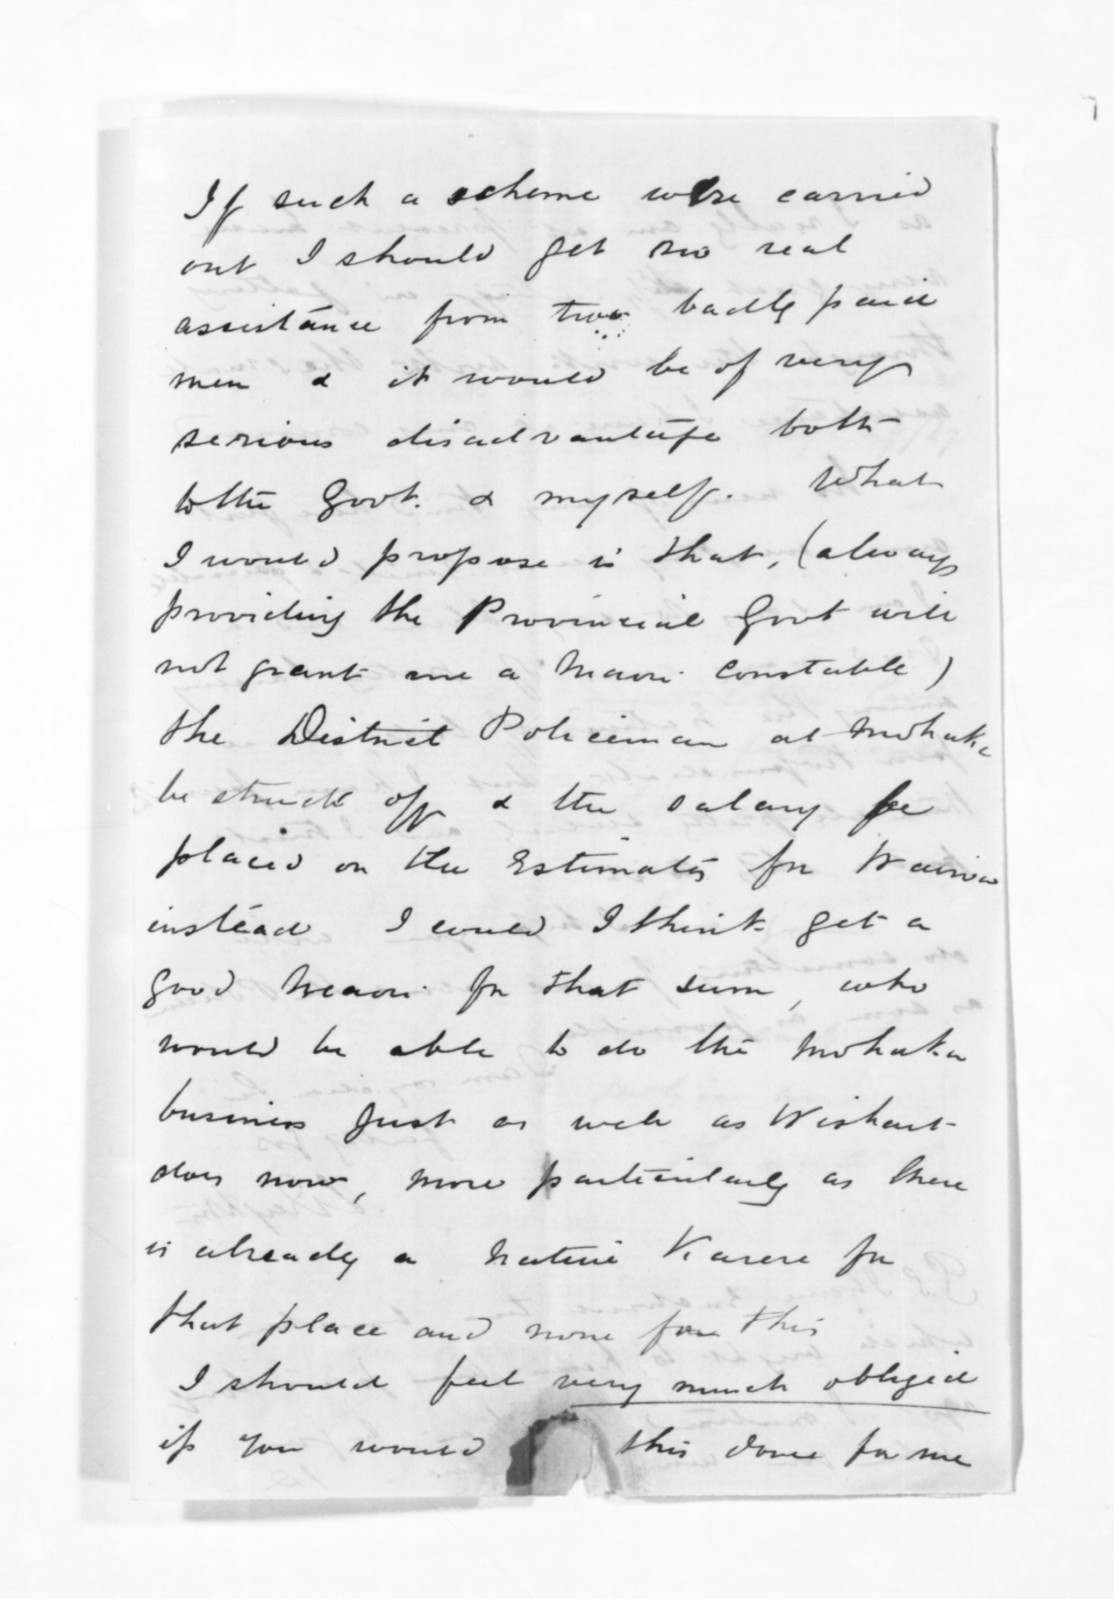 If such a scheme were carried
out I should get no real
assistance from two badly paid
men & it would be of very
serious disadvantage both
to the Govt. & myself. What
I would propose is that, (always
providing the Provincial Govt will
not grant me a Maori constable)
the District Policeman at Mohaka
be struck off & the salary be
placed on the Estimates for Wairoa
instead I could I think get a
good Maori for that sum, who
would be able to do the Mohaka
business just as well as Wishart
does now, more particularly as there
is already a Native Karere for
that place and none for this
I should feel very much obliged
if you would this done for me